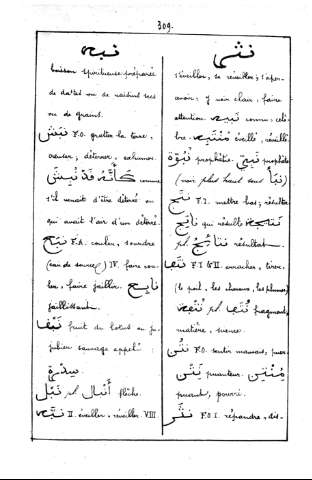 309.
نبيذ
boisson spiritueuse préparée
de dattes ou de raisins secs
ou de grains.
نَبَش F.O. gratter la terre,
creuser, déterrer, exhumer.
كَأَنَّه قَدْ نُبِش comme
s'il venait d'être déterré ou
qui avait l'air d'un déterré.
نَبَع F.A. couler, sourdre
(eau de source) IV. faire cou-
ler, faire jaillir. نَابِع
jaillissant.
نَبْق fruit du lotus ou ju-
jubier sauvage appelé :
سِدْرة
نَبْل pl. أَنْبَال flèche.
نبّه II. éveiller, réveiller. VIII.
s'éveiller, se réveiller; s'aper-
cevoir; y voir clair, faire
attention. نَبِيه connu, célè-
bre. مُنْتَبِه éveillé, réveillé.
نُبُوَّة prophétie. نَبِيّ prophète
(voir plus haut sous نَبَأ)
نَتَج F.I. mettre bas; résulter
نَاتِج qui résulte. نَتِيجة
pl. نَتَائِج résultat.
F.I. & II. arracher, tirer
(le poil, les cheveux, les plumes)
pl. fragment,
matière, mence.
نَتُن F.O. sentir mauvais, puer.
نَتْن puanteur. مُنْتِن
puant, pourri.
نَثَر F.O.I. répandre, dis-